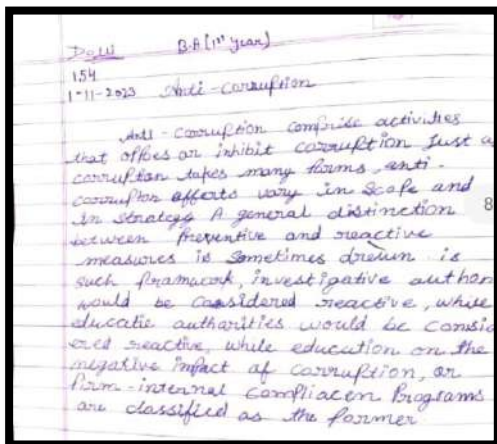 B.A (1st year)
154
1-11-2023 Anti-corruption
Anti-corruption comprise activities
that offoes or inhibit corruption Just a
corruption takes many forms, anti-
corruptor efforts vary in Scope and
in strategy A general distinction
between Preventive and reactive
measures is Sometimes drewn. is
such framwork, investigative author
would be considered reactive, while
educatie autharities would be consid
ered reactive, while education on the
negative impact of corruption, or
firm-internal compliacen Programs
are classified as the former
8